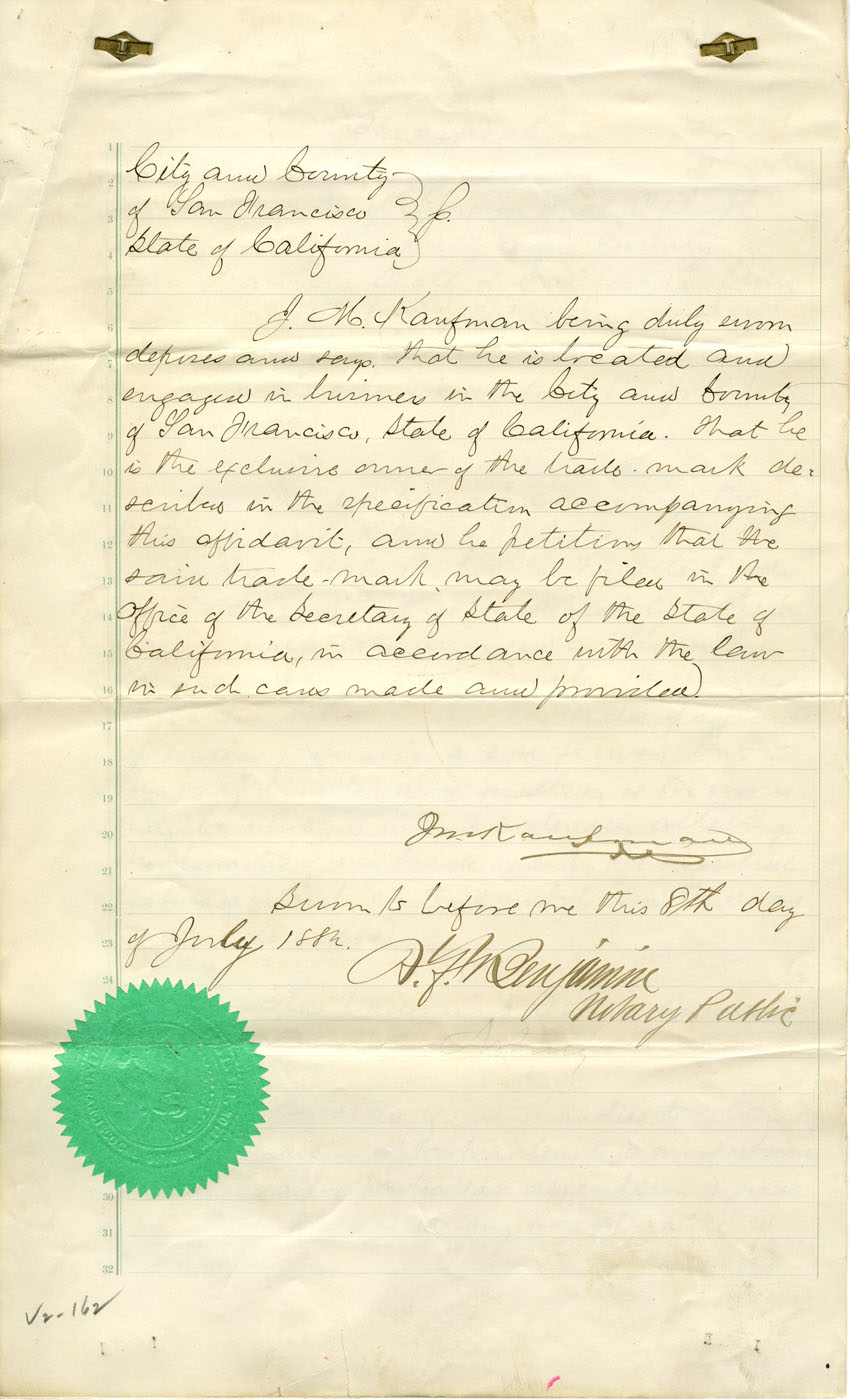 City and County
of San Francisco } ss.
State of California
J. M. Kaufman being duly sworn
deposes and says, that he is located and
engaged in business in the City and County
of San Francisco, State of California. That he
is the exclusive owner of the trade-mark de=
scribed in the specification accompanying
this affidavit, and he petitions that the
said trade-mark, may be filed in the
Office of the Secretary of State of the State of
California, in accordance with the law
in such cases made and provided.
JM Kaufman
Sworn to before me this 8th day
of July
Benjamin
Notary Public
V2-162
1
2
3
4
5
6
7
8
9
10
11
12
13
14
15
16
17
18
19
20
21
22
23
24
30
31
32